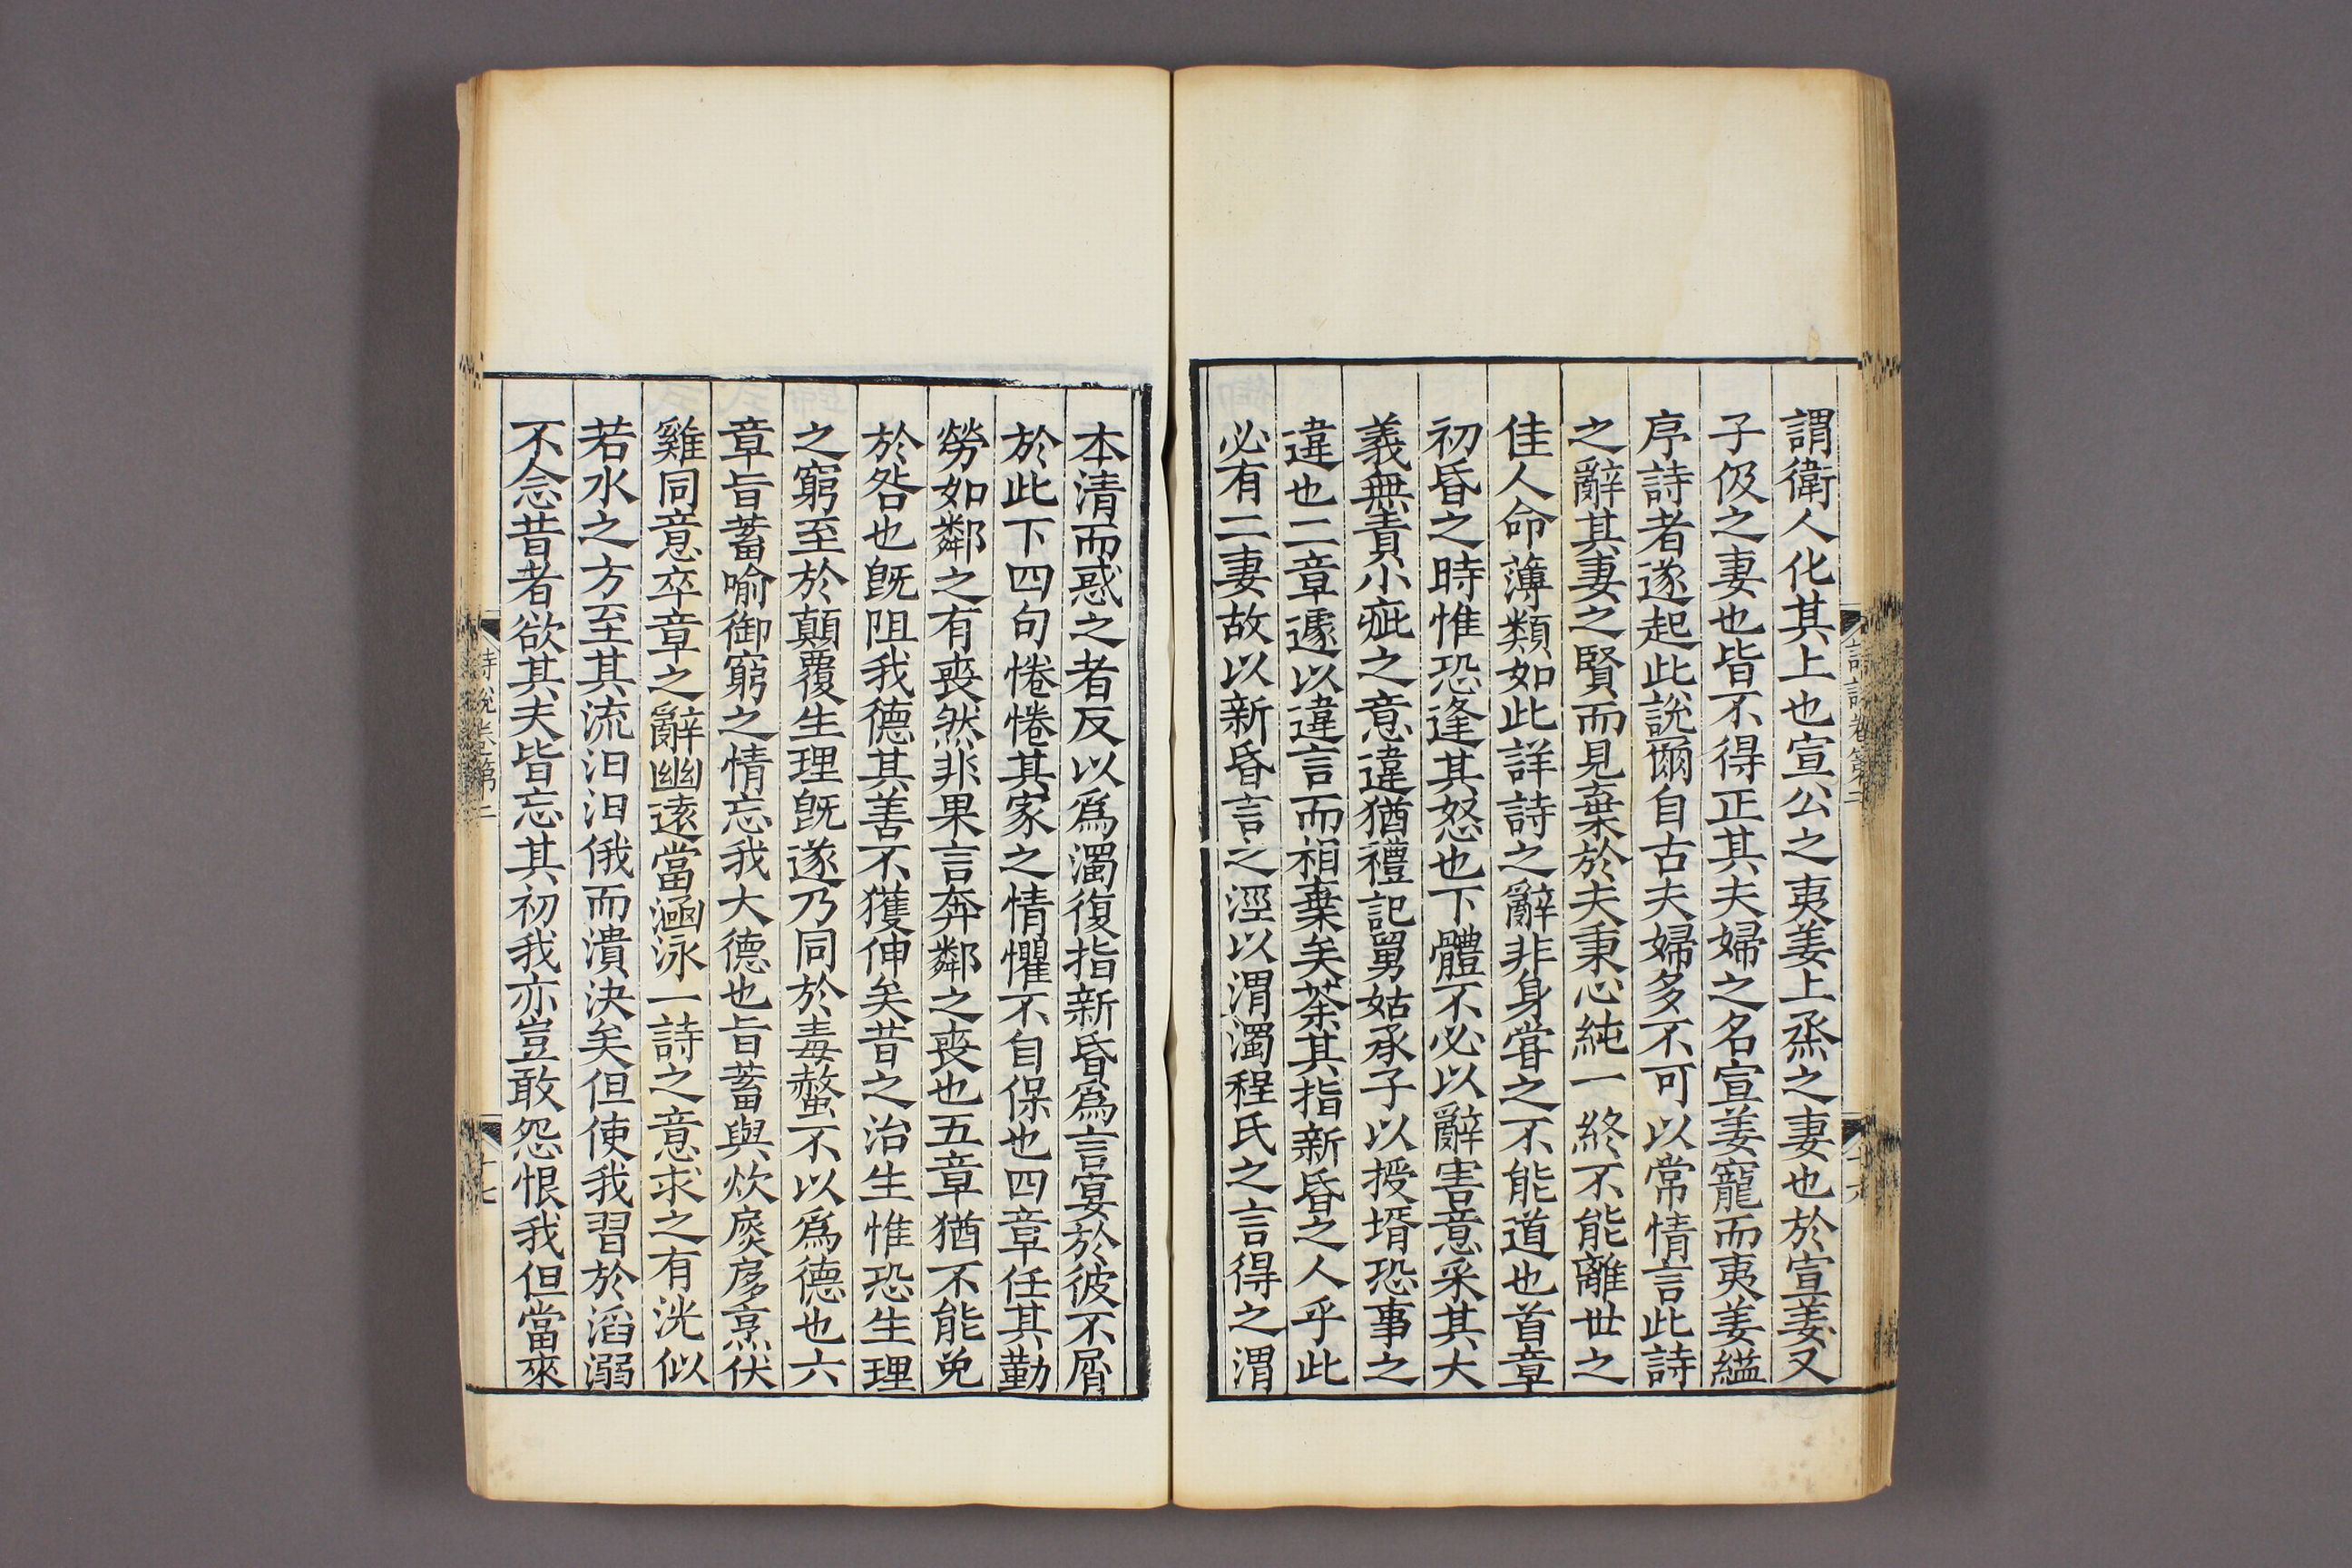 謂衛人化其上也宣公之夷姜上烝之妻也於宣姜又
子伋之妻也皆不得正其夫婦之名宣姜寵而夷姜縊
序詩者遂起此說爾自古夫婦多不可以常情言此詩
之辭其妻之賢而見棄於夫秉心純一終不能離世之
佳人命薄類如此詳詩之辭非身甞之不能道也首章
初昏之時惟恐逢其怒也下體不必以辭害意采其大
義無責小疵之意違猶禮記舅姑承子以授壻恐事之
違也二章遽以違言而相棄矣荼其指新昏之人乎此
必有二妻故以新昏言之涇以渭濁程氏之言得之渭
詩說卷第二
十六
本清而惑之者反以爲濁復指新昏爲言宴於彼不屑
於此下四句惓惓其家之情懼不自保也四章任其勤
勞如鄰之有喪然非果言奔鄰之喪也五章猶不能免
於咎也旣阻我德其善不獲伸矣昔之治生惟恐生理
之窮至於顛覆生理旣遂乃同於毒螫不以爲德也六
章旨蓄喻御窮之情忘我大德也旨蓄與炊扊扅烹伏
雞同意卒章之辭幽遠當涵泳一詩之意求之有洸似
若水之方至其流汩汩俄而潰決矣但使我習於滔溺
不念昔者欲其夫皆忘其初我亦豈敢怨恨我但當來
詩說卷第二
十七